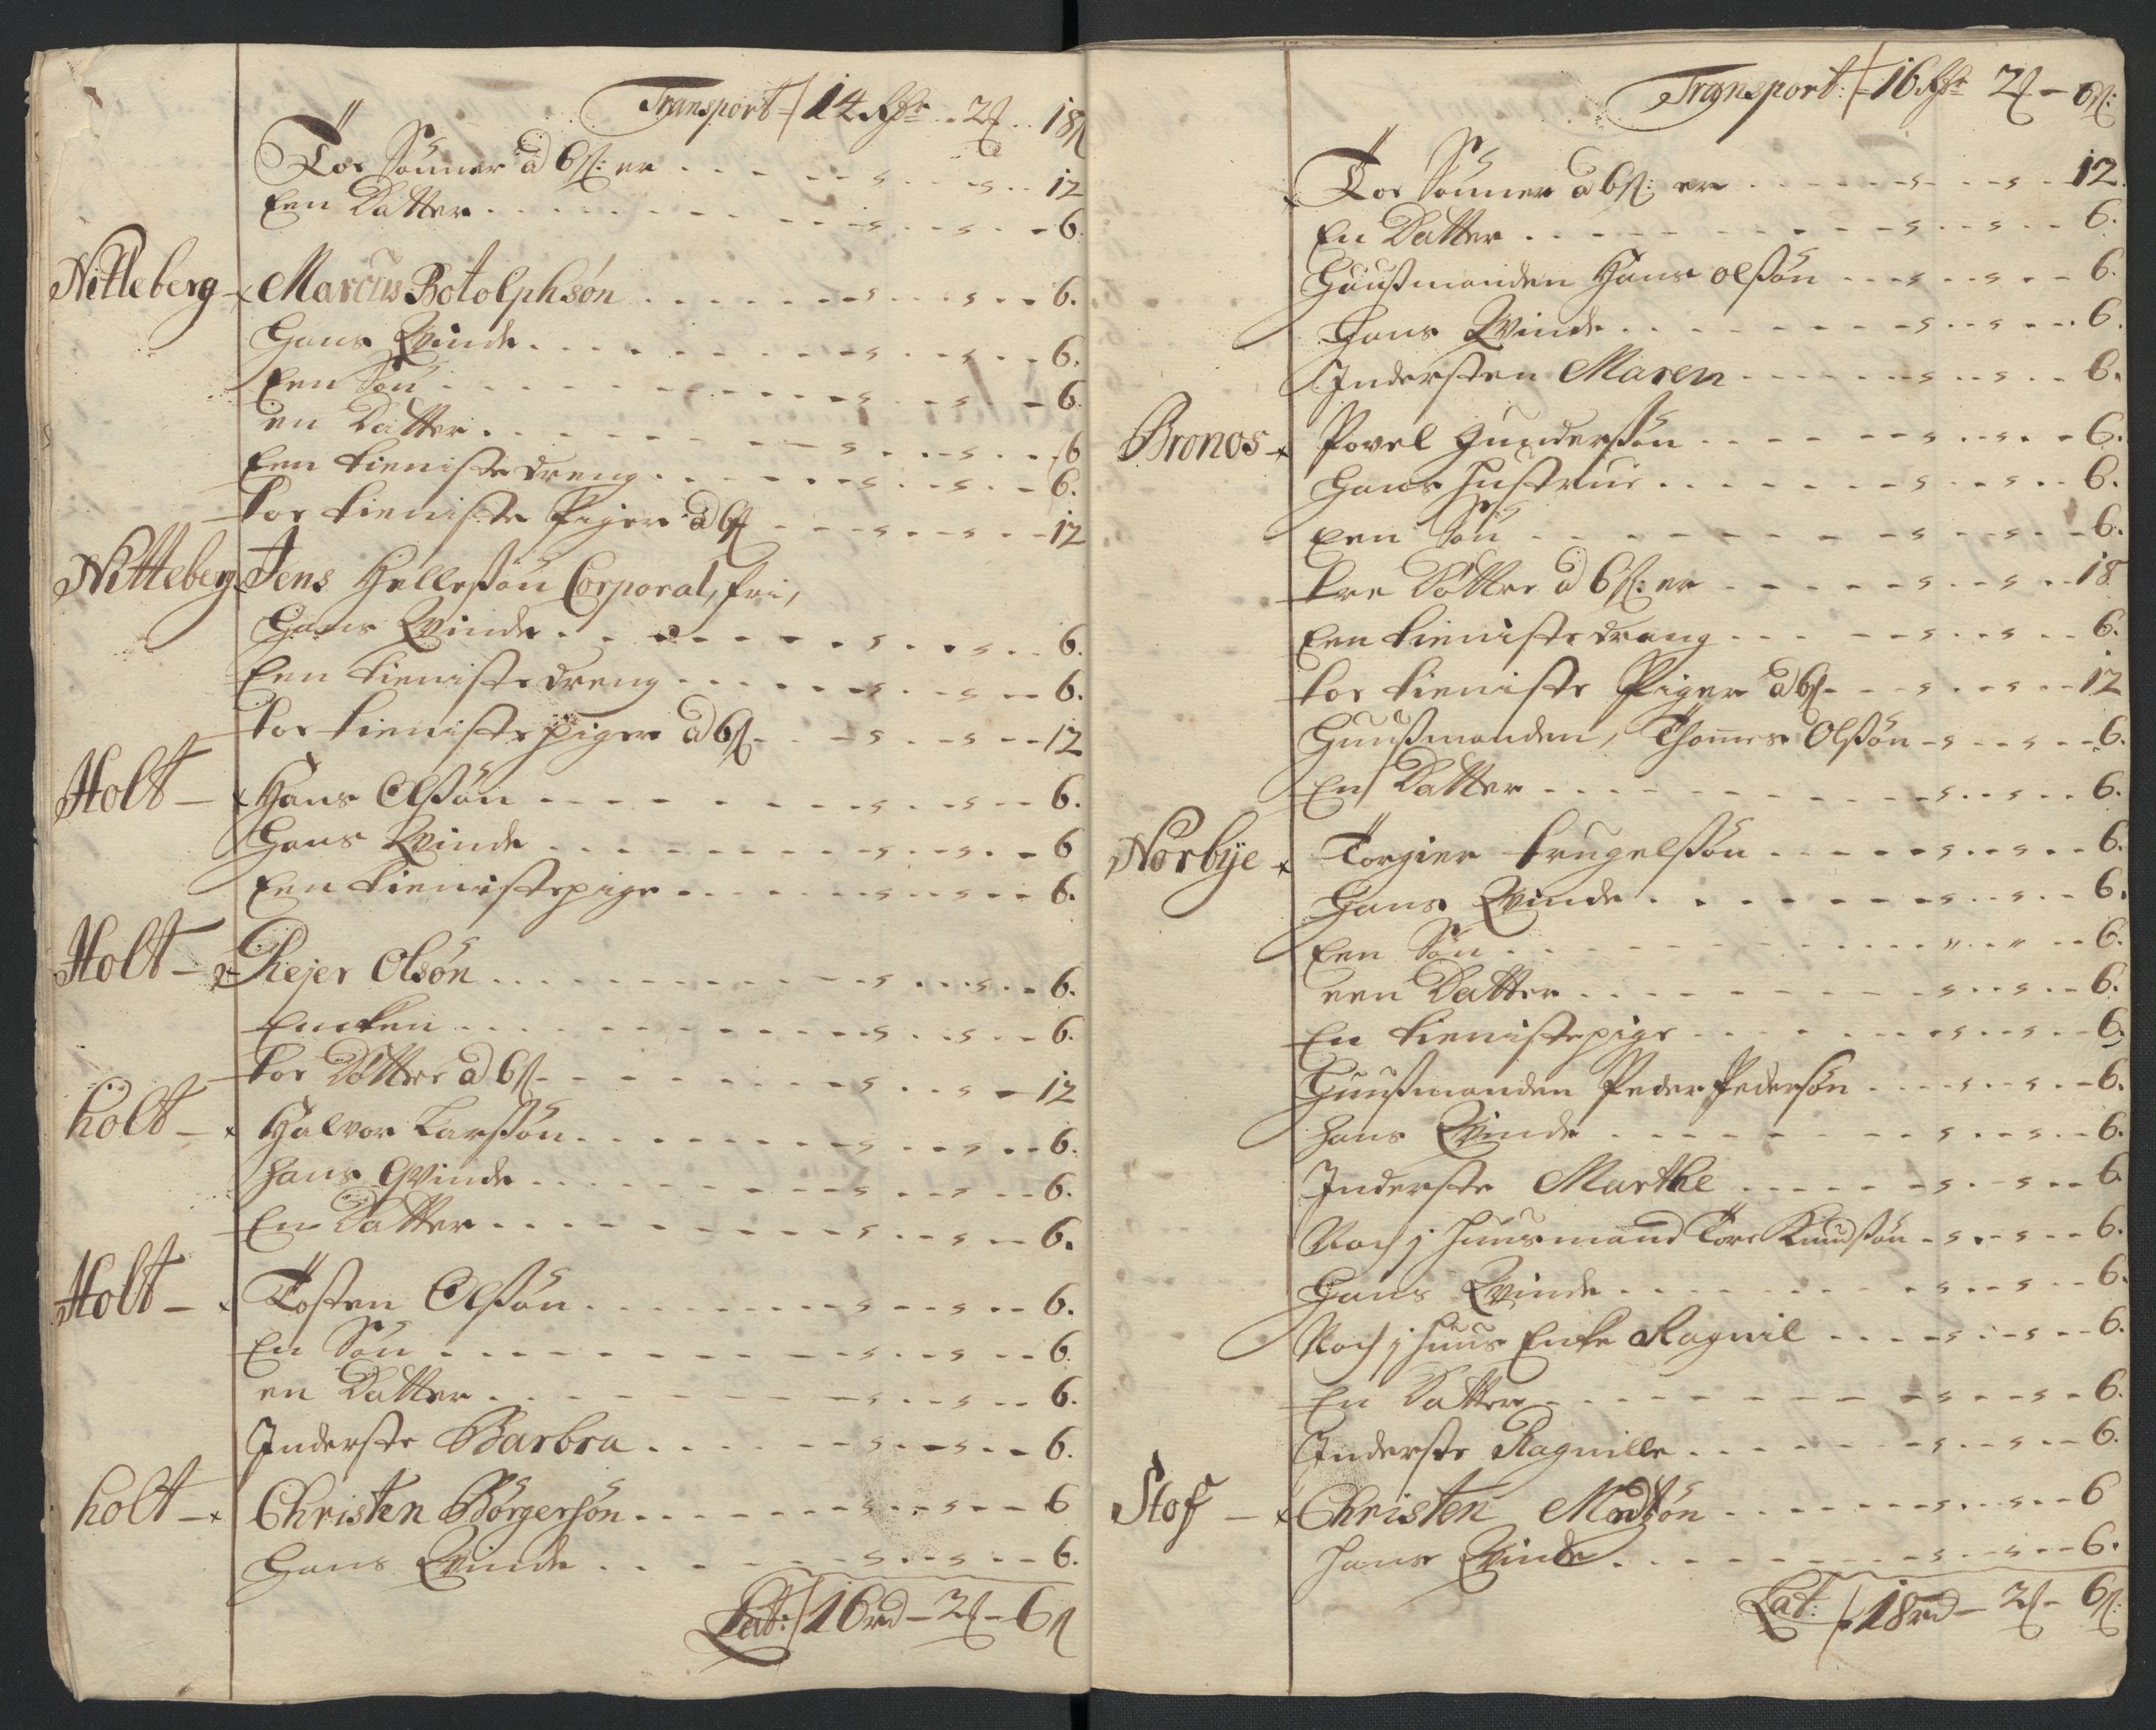 Transport 14 Rdr - 2 ß - 18 ß
Toe Sønner à 6 ß: er - - - 12
Een Datter - - - 6.
Nitteberg - Marcus Botolphsøn - - - 6.
Hans Qvinde - - - 6.
Een Søn - - - 6.
en Datter - - - 6
Een tieniste dreng - - - 6.
toe tieniste Piger à 6 ß - - - 12
Nitteberg Jens Hellessøn Corporal, fri,
Hans Qvinde - - - 6.
Een tieniste dreng - - - 6.
toe tieniste piger à 6 ß - - - 12
Holt - Hans Olssøn - - - 6.
Hans Qvinde - - - 6
Een tieniste pige - - - 6.
Holt - Rejer Olsøn - - - 6.
Encken - - - 6.
toe Døttre à 6 ß - - - 12
holt - Halvor Larssøn - - - 6.
hans Qvinde - - - 6.
En Datter - - - 6.
Holt - Tosten Olssøn - - - 6.
En Søn - - - 6.
en Datter - - - 6.
Inderste Barbra - - - 6.
holt - Christen Børgersøn - - - 6
Hans Qvinde - - - 6.
Lat: 16 rd - 2 ß - 6 ß
Transport: 16 Rdr 2 ß - 6 ß:
Toe Sønner à 6 ß: er - - - 12.
En Datter - - - 6.
Huusmanden Hans olssøn - - - 6.
Hans Qvinde - - - 6.
Indersten Maren - - - 6.
Bronos - Povel Gunderssøn - - - 6.
Hans Hustrue - - - 6.
Een Søn - - - 6.
tre Døttre à 6 ß: er - - - 18
Een tieniste dreng - - - 6.
toe tieniste Piger à 6 ß - - - 12
Huusmanden, Thomes Olssøn - - - 6.
En Datter - - - 6.
Nørbÿe - Torgier trugelssøn - - - 6.
Hans Qvinde - - - 6.
Een Søn - - - 6.
een Datter - - - 6.
En tieniste pige - - - 6.
Huusmanden Peder Pedersøn - - - 6.
hans Qvinde - - - 6.
Inderste Marthe - - - 6
Noch j huusmand Tore Knudssøn - - - 6.
Hans Qvinde - - - 6.
Noch j huus Enke Ragnil - - - 6.
En Datter - - - 6.
Inderste Ragnille - - - 6.
Stof - Christen Madsøn - - - 6
hans Qvinde - - - 6.
Lat: 18 rd - 2 ß - 6 ß: